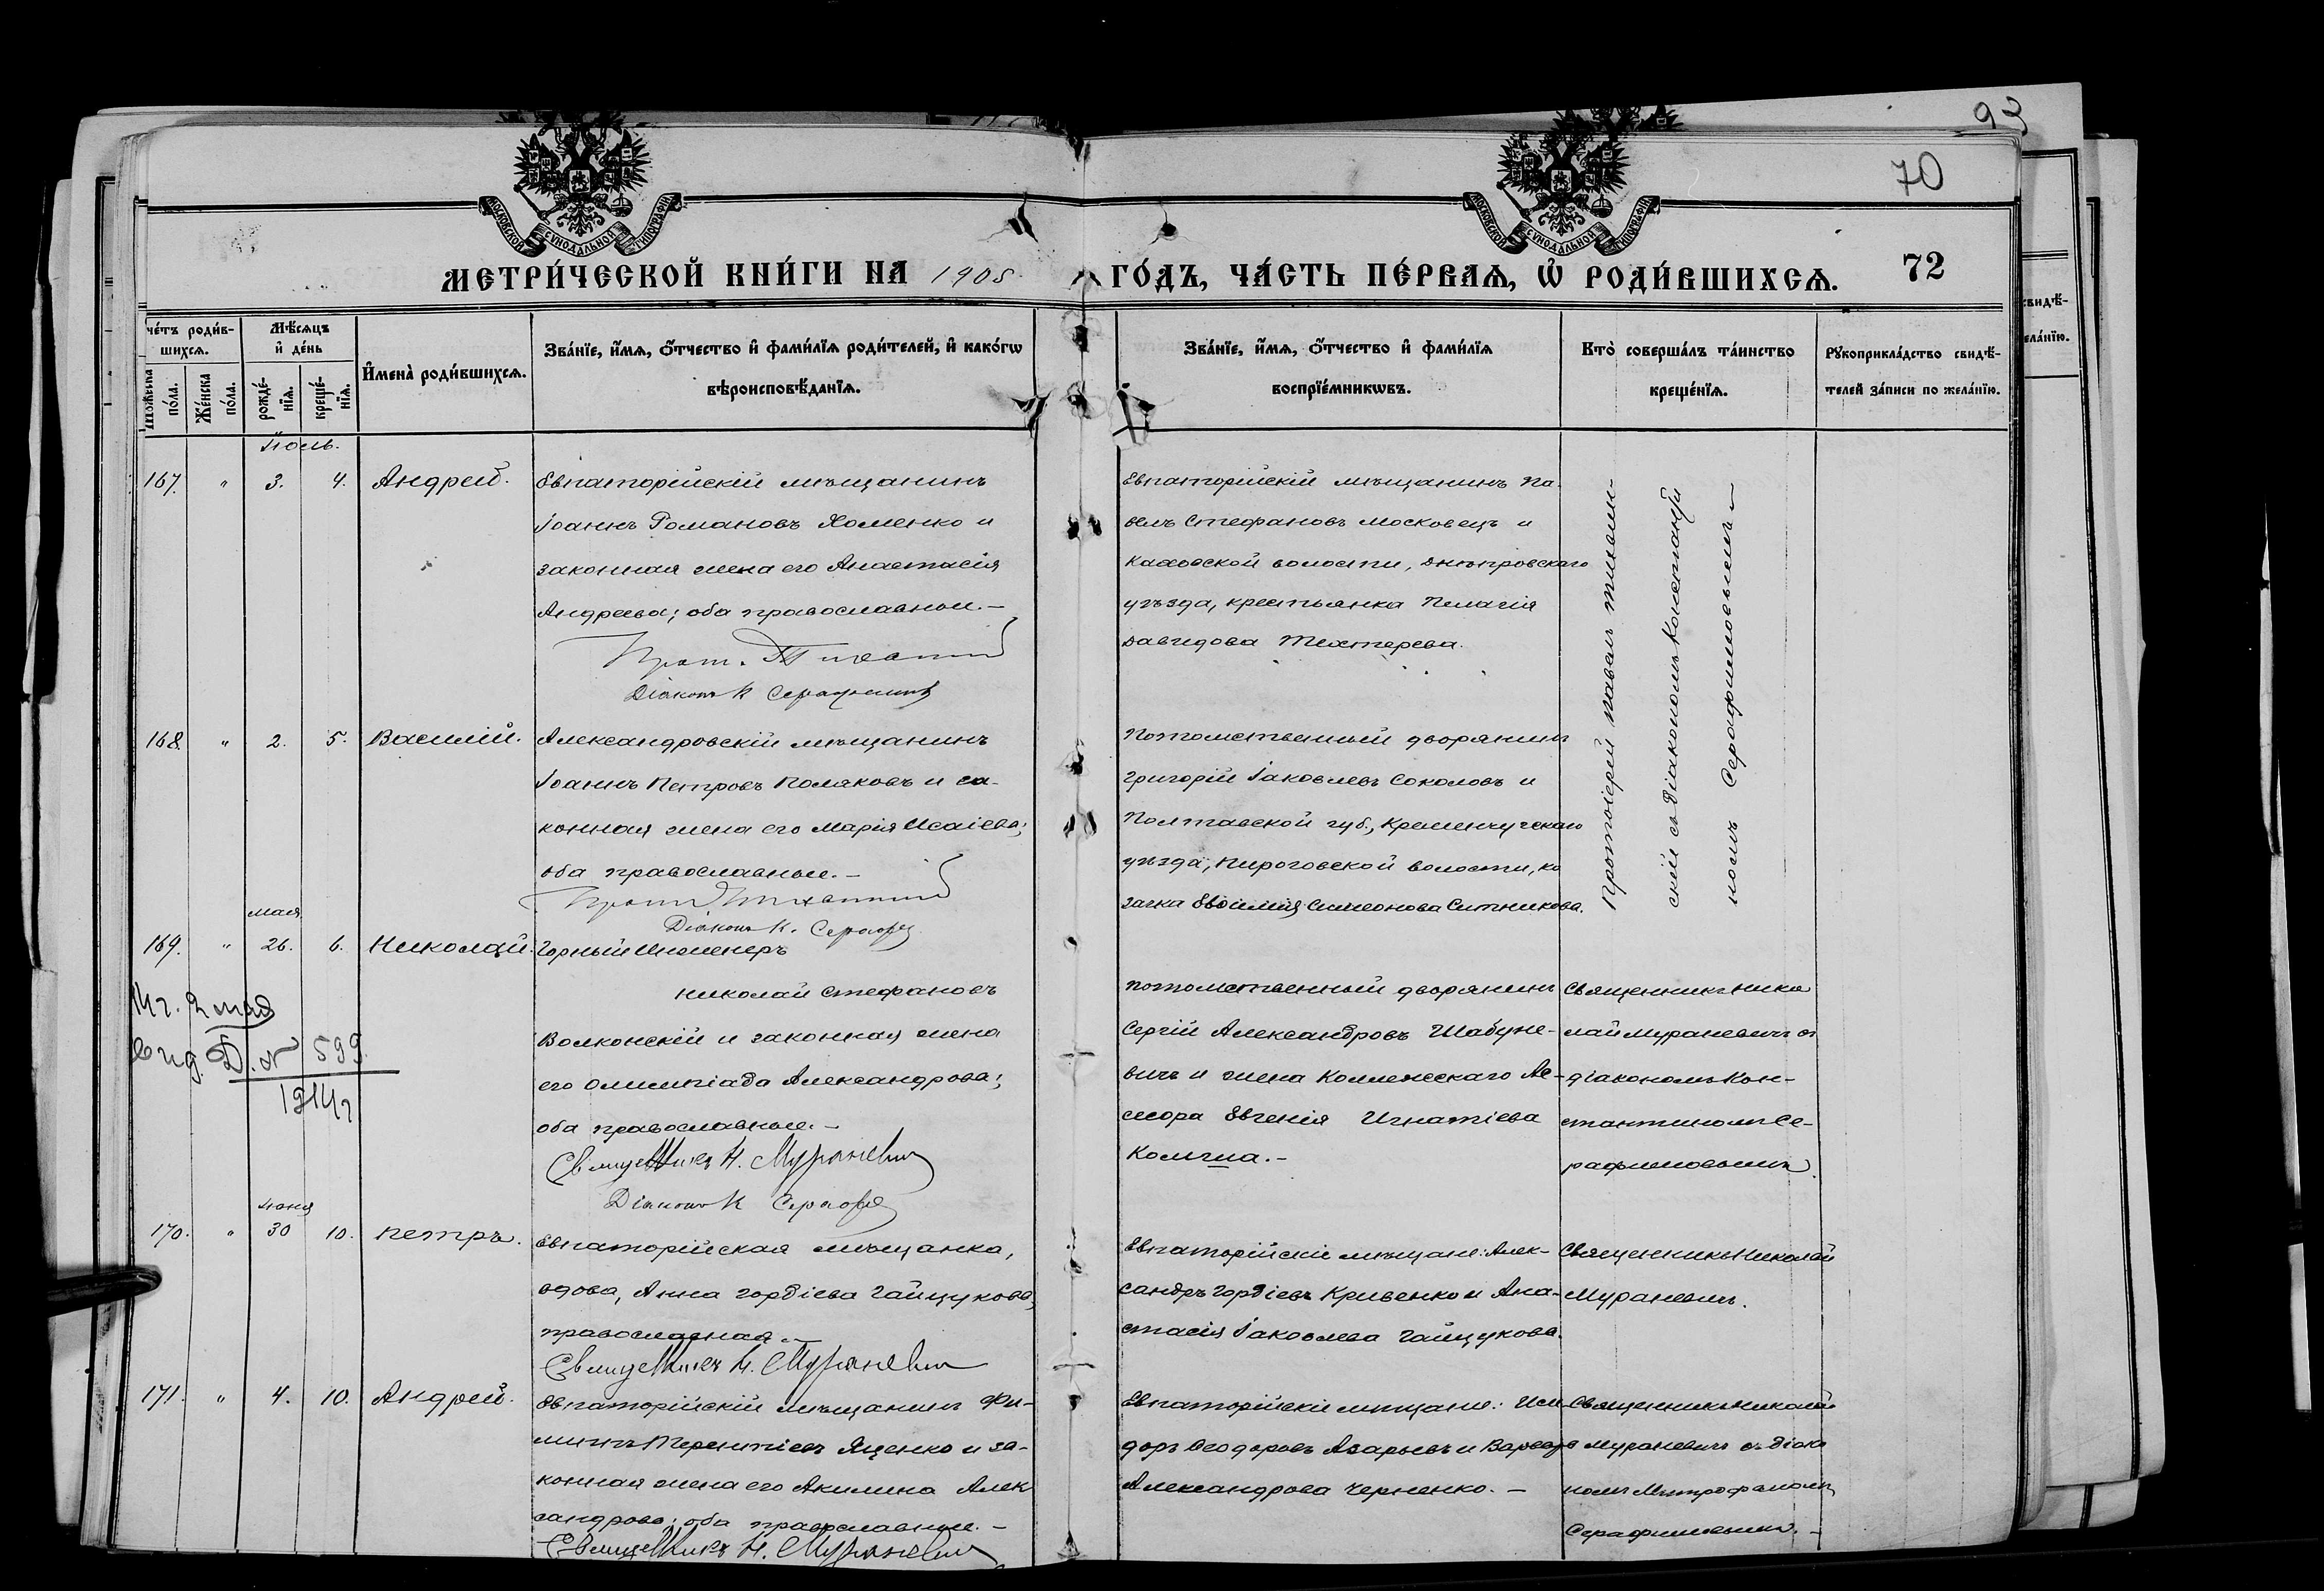 93
70
МОСКОВСКОЙ СУНОДАЛЬНОЙ ТИПОГРАФІИ
МОСКОВСКОЙ СУНОДАЛЬНОЙ ТИПОГРАФІИ
МЕТРИ́ЧЕСКОЙ КНИ́ГИ НА 1905 ГО́ДЪ, ЧА́СТЬ ПЕ́РВАѦ, Ѡ҆ РОДИ́ВШИХСѦ. 72
че́тъ роди́в-
шихсѧ.
Мꙋ́жеска по́ла.
Же́нска по́ла.
Мѣ́сѧцъ
и҆ де́нь
рожде́-
нїѧ.
креще́-
нїѧ.
И҆мена̀ роди́вшихсѧ.
Зва́нїе, и҆́мѧ, ѻ҆́тчество и҆ фами́лїѧ роди́телей, и҆ како́гѡ
вѣроисповѣ́данїѧ.
Зва́нїе, и҆́мѧ, ѻ҆́тчество и҆ фами́лїѧ
воспрїе́мникѡвъ.
Кто̀ соверша́лъ та́инство
креще́нїѧ.
Рꙋкоприкла́дство свидѣ́-
телей за́писи по жела́нїю.
свидѣ́-
жела́нїю.
Іюль.
167. " 3. 4. Андрей.
Евпаторійскій мѣщанинъ
Іоаннъ Романовъ Хоменко и
законная жена его Анастасія
Андреева; оба православные.-
Прот. Тихвинскій
Діаконъ К Серафимовъ
Евпаторійскій мѣщанинъ Па-
велъ Стефановъ Московецъ и
Каховской волости, Днѣпровскаго
уѣзда, крестьянка Пелагія
Давидова Техтерева.
Протоіерей Павелъ Тихвин-
скій съ діакономъ Константи-
номъ Серафимовымъ-
168. " 2. 5. Василій.
Александровскій мѣщанинъ
Іоаннъ Петровъ Поляковъ и за-
конная жена его Марія Исаіева;
оба православные.-
Прот Тихвинскій
Діаконъ К. Сераф
Потомственный дворянинъ
Григорій Іаковлевъ Соколовъ и
Полтавской губ., Кременчугскаго
уѣзда, Пироговской волости, ко
зачка Евѳимія Симеонова Ситникова.
мая
169. " 26. 6. Николай.
Горный Инженеръ
Николай Стефановъ
Волконскій и законная жена
его Олимпіада Александрова;
оба православные.-
Священникъ Н. Мураневичъ
Діаконъ К Сераф
14 г. 2 мая
Д. № 599
1914 г
потомственный дворянинъ
Сергій Александровъ Шабуне-
вичъ и жена Коллежскаго Ас-
сесора Евгенія Игнатіева
Священникъ Нико
лай Мураневичъ съ
діакономъ Кон-
стантиномъ Се-
рафимовымъ
іюня
170. " 30 10. Петръ.
Евпаторійская мѣщанка,
вдова, Анна Гордіева Гайцукова,
православная.-
Священникъ Н. Мураневичъ
Евпаторійскіе мѣщане: Алек-
сандръ Гордіевъ Кривенко и Ана-
стасія Іаковлева Гайцукова.
Священникъ Николай
Мураневичъ.
171. " 4. 10. Андрей.
Евпаторійскій мѣщанинъ Фи-
липпъ Терентіевъ Яценко и за-
конная жена его Акилина Алек
сандрова; оба православные.-
Священникъ Н. Мураневичъ
Евпаторійскіе мѣщане: Иси-
доръ Ѳеодоровъ Азарьевъ и Варвара
Александрова Черненко.-
Священникъ Николай
Мураневичъ съ діако
номъ Митрофаномъ
Серафимовымъ.-